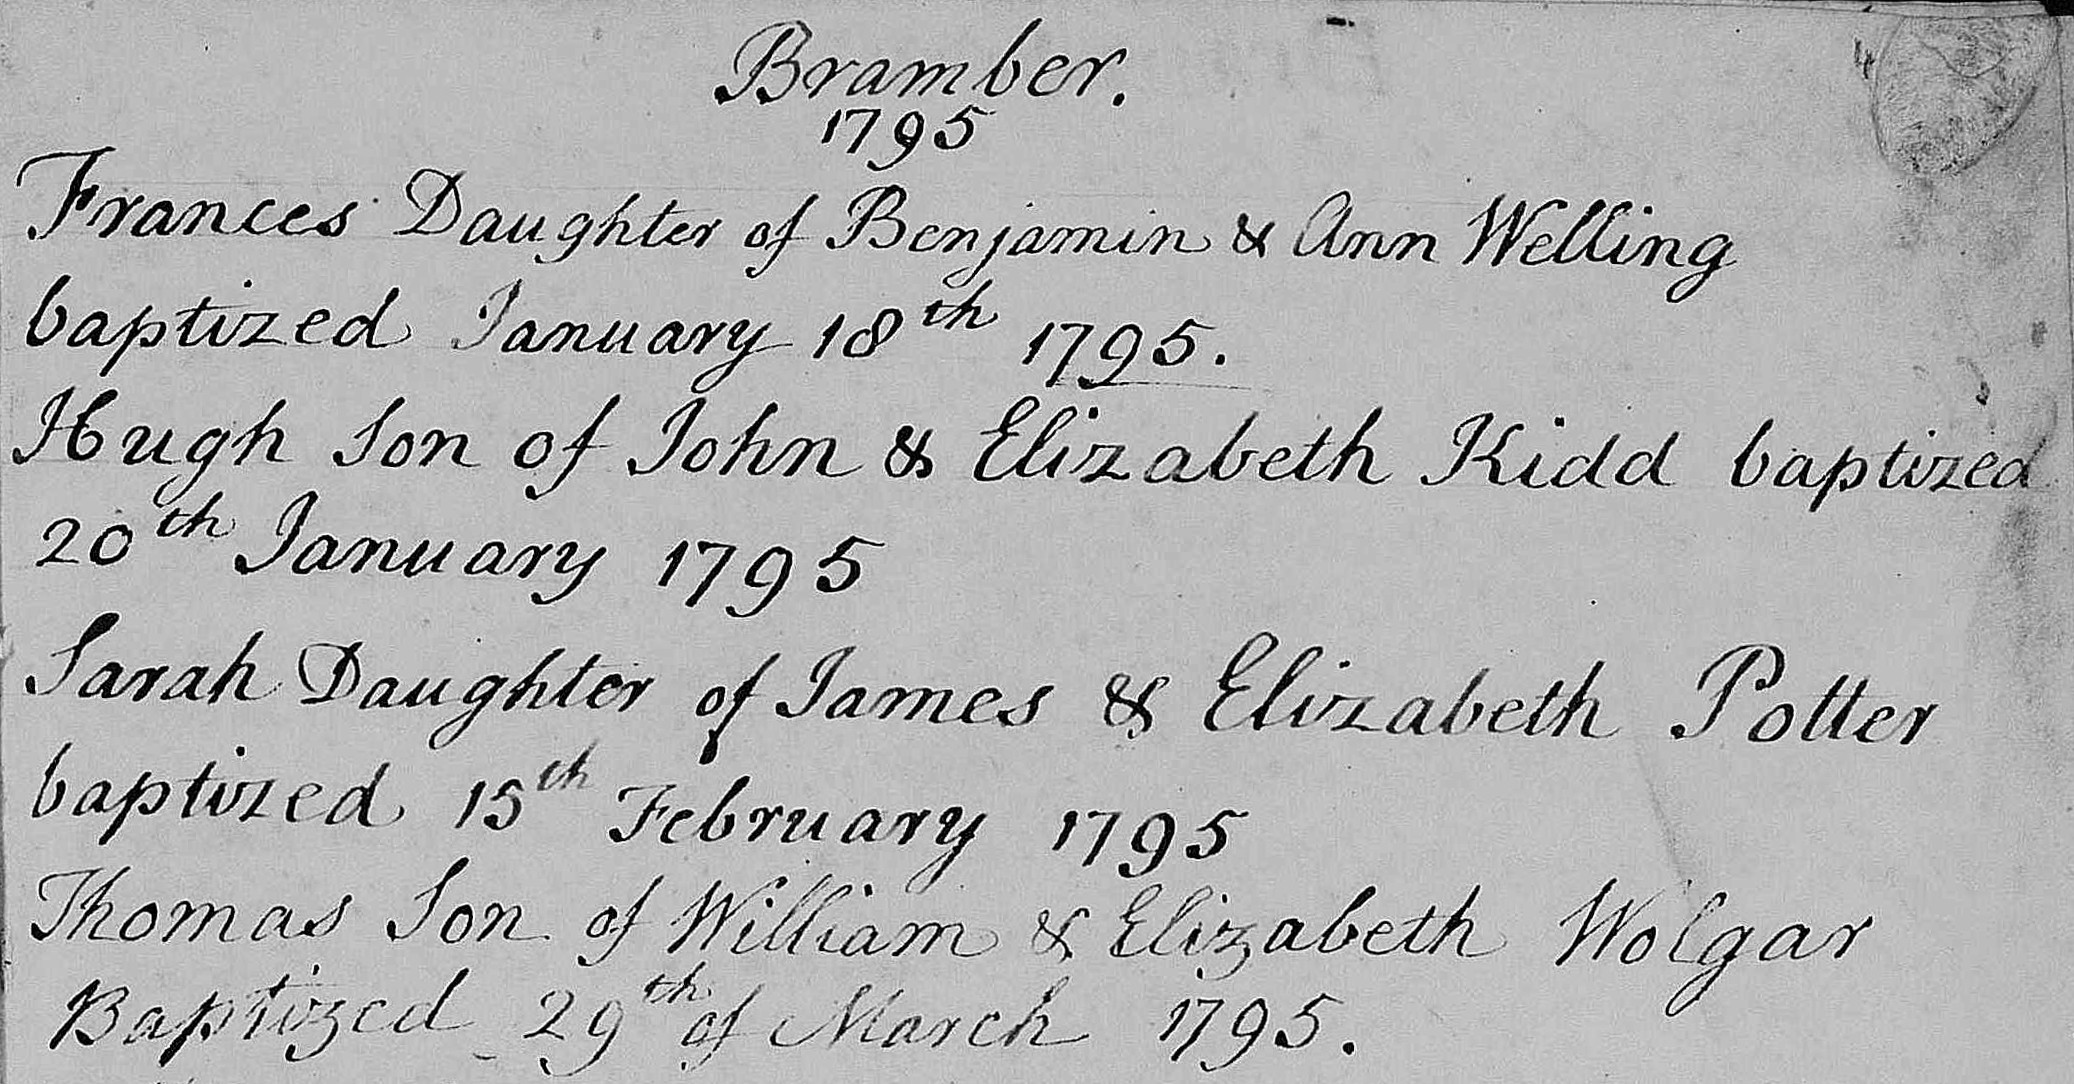 Bramber.
1795
Frances Daughter of Benjamin & Ann Welling
baptized January 18th 1795.
Hugh Son of John & Elizabeth Kidd baptized
20th January 1795
Sarah Daughter of James & Elizabeth Potter
baptized 15th February 1795
Thomas Son of William & Elizabeth Wolgar
Baptized 29th of March 1795.